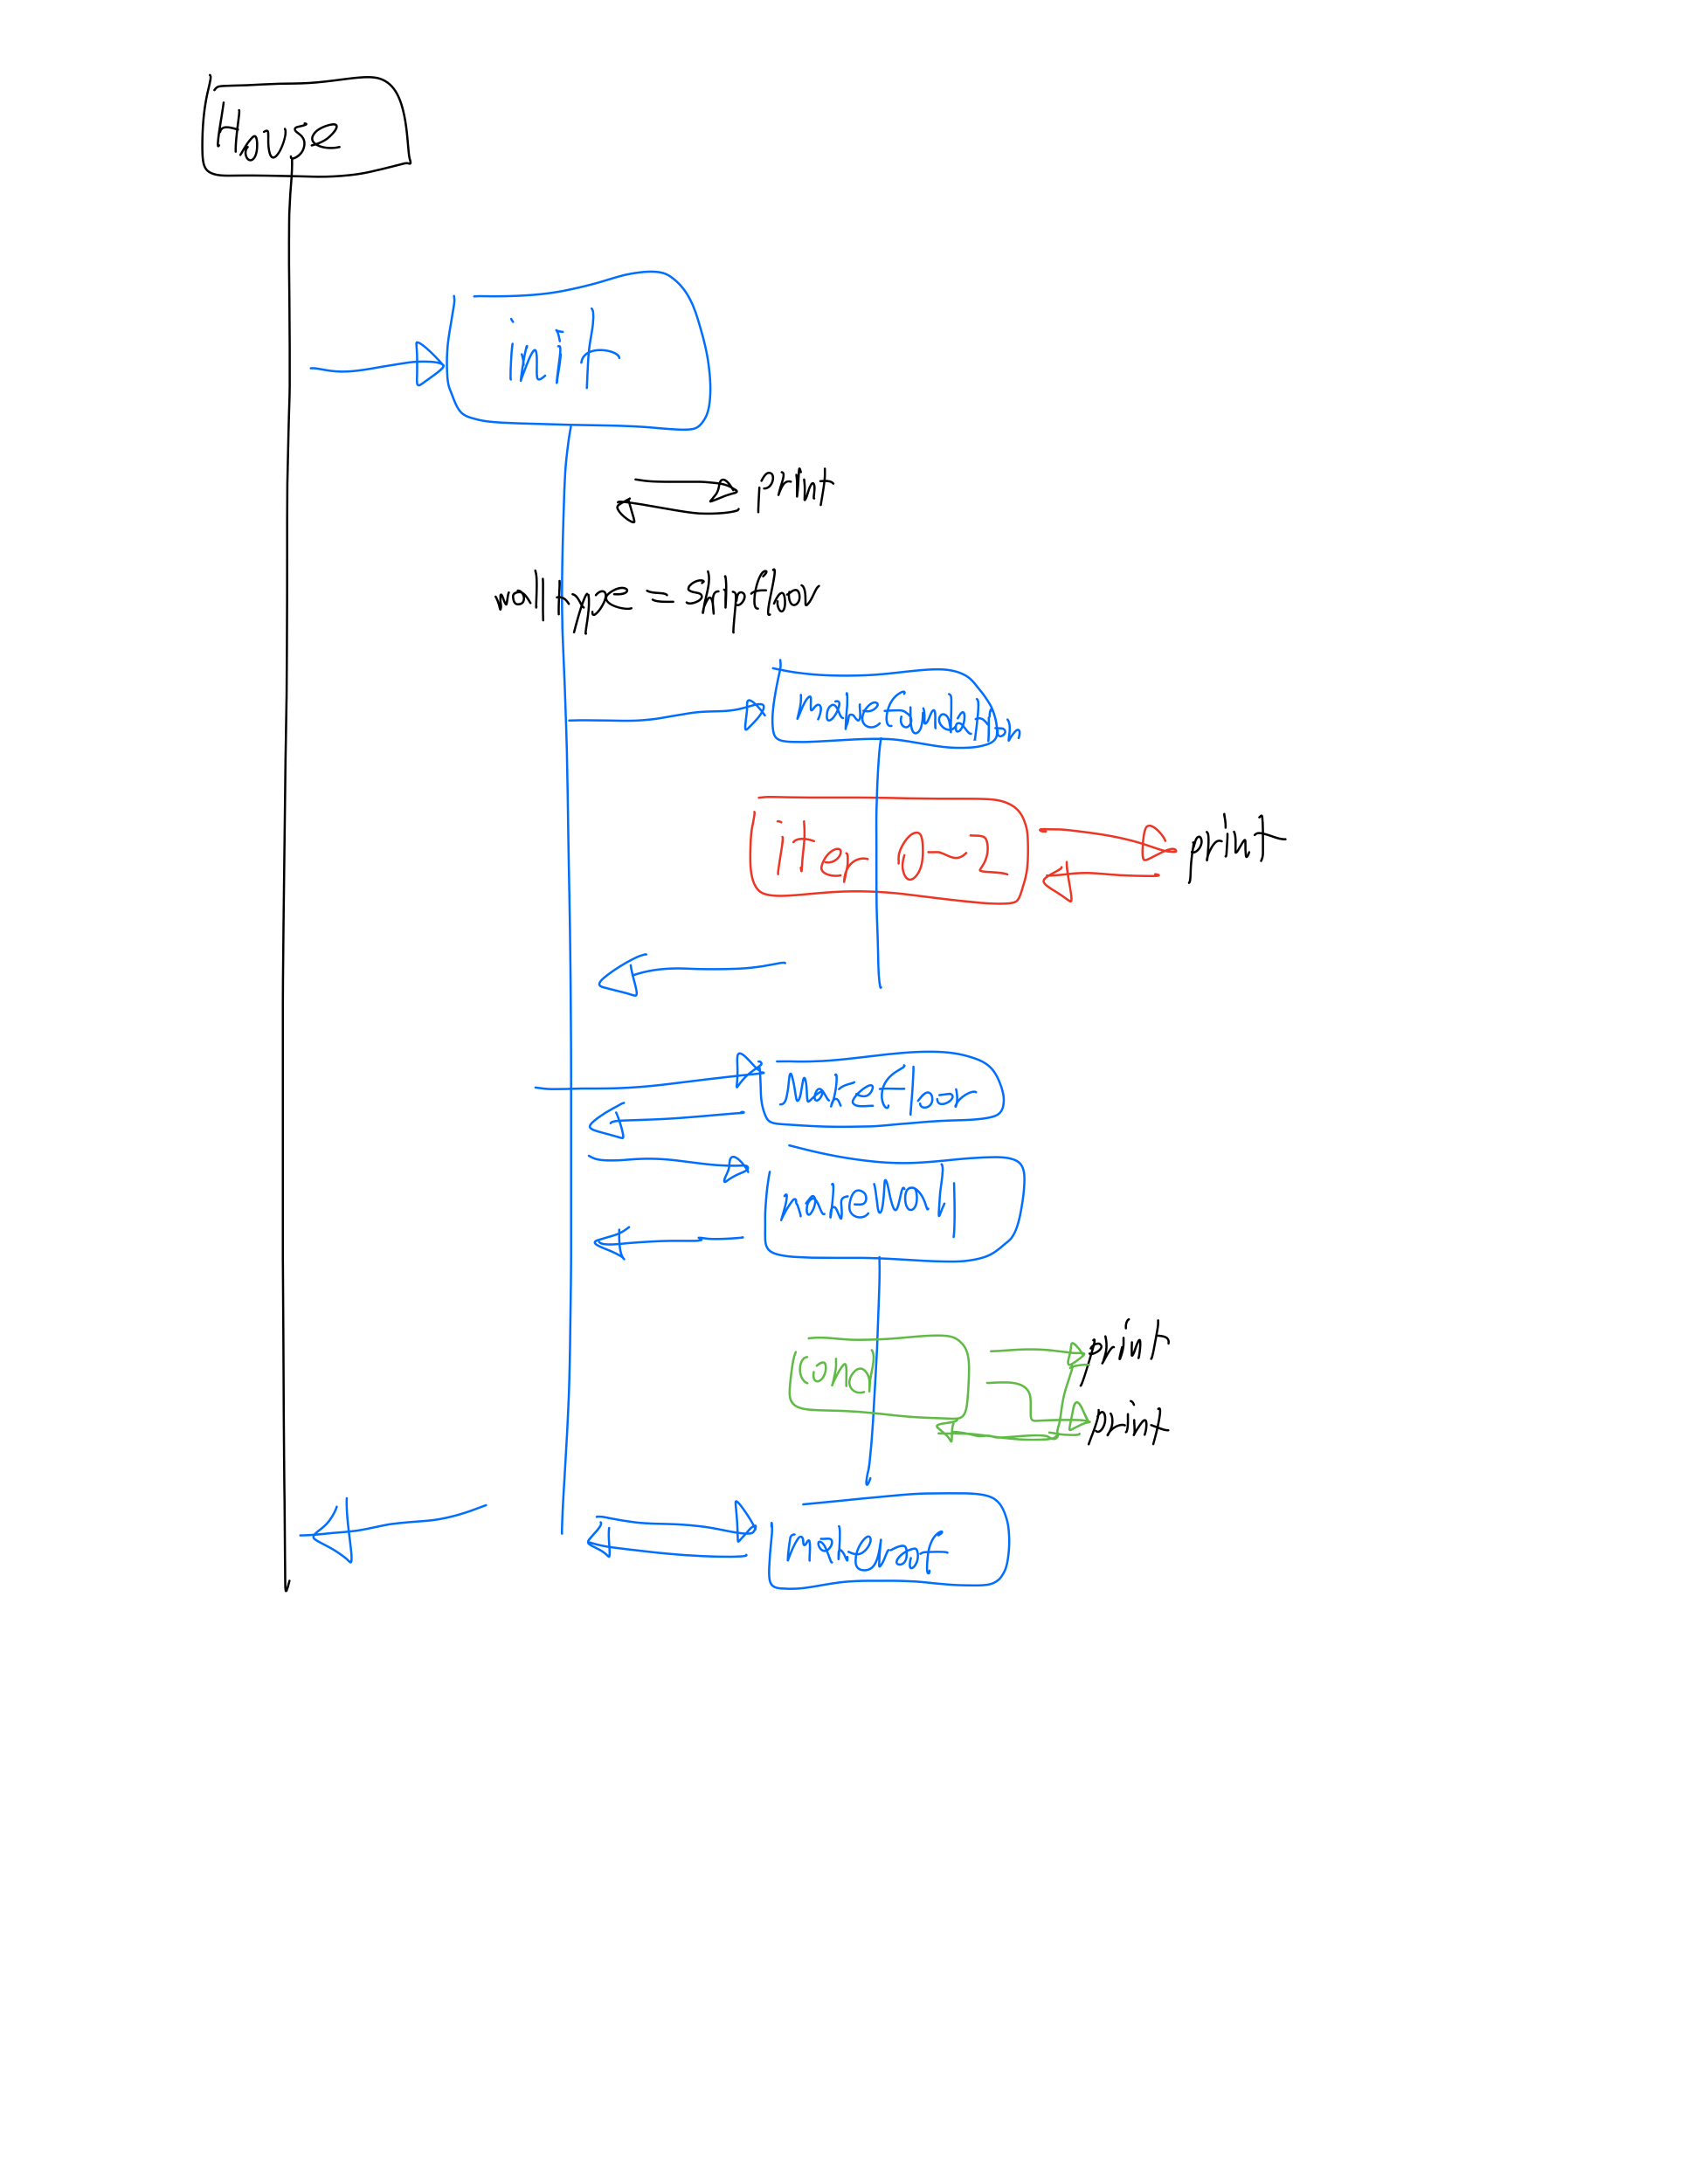 House
init
print
walltype = shipflow
makefoundation
iter 0-2
print
Makefloor
makewall
cond
print
print
makeroof